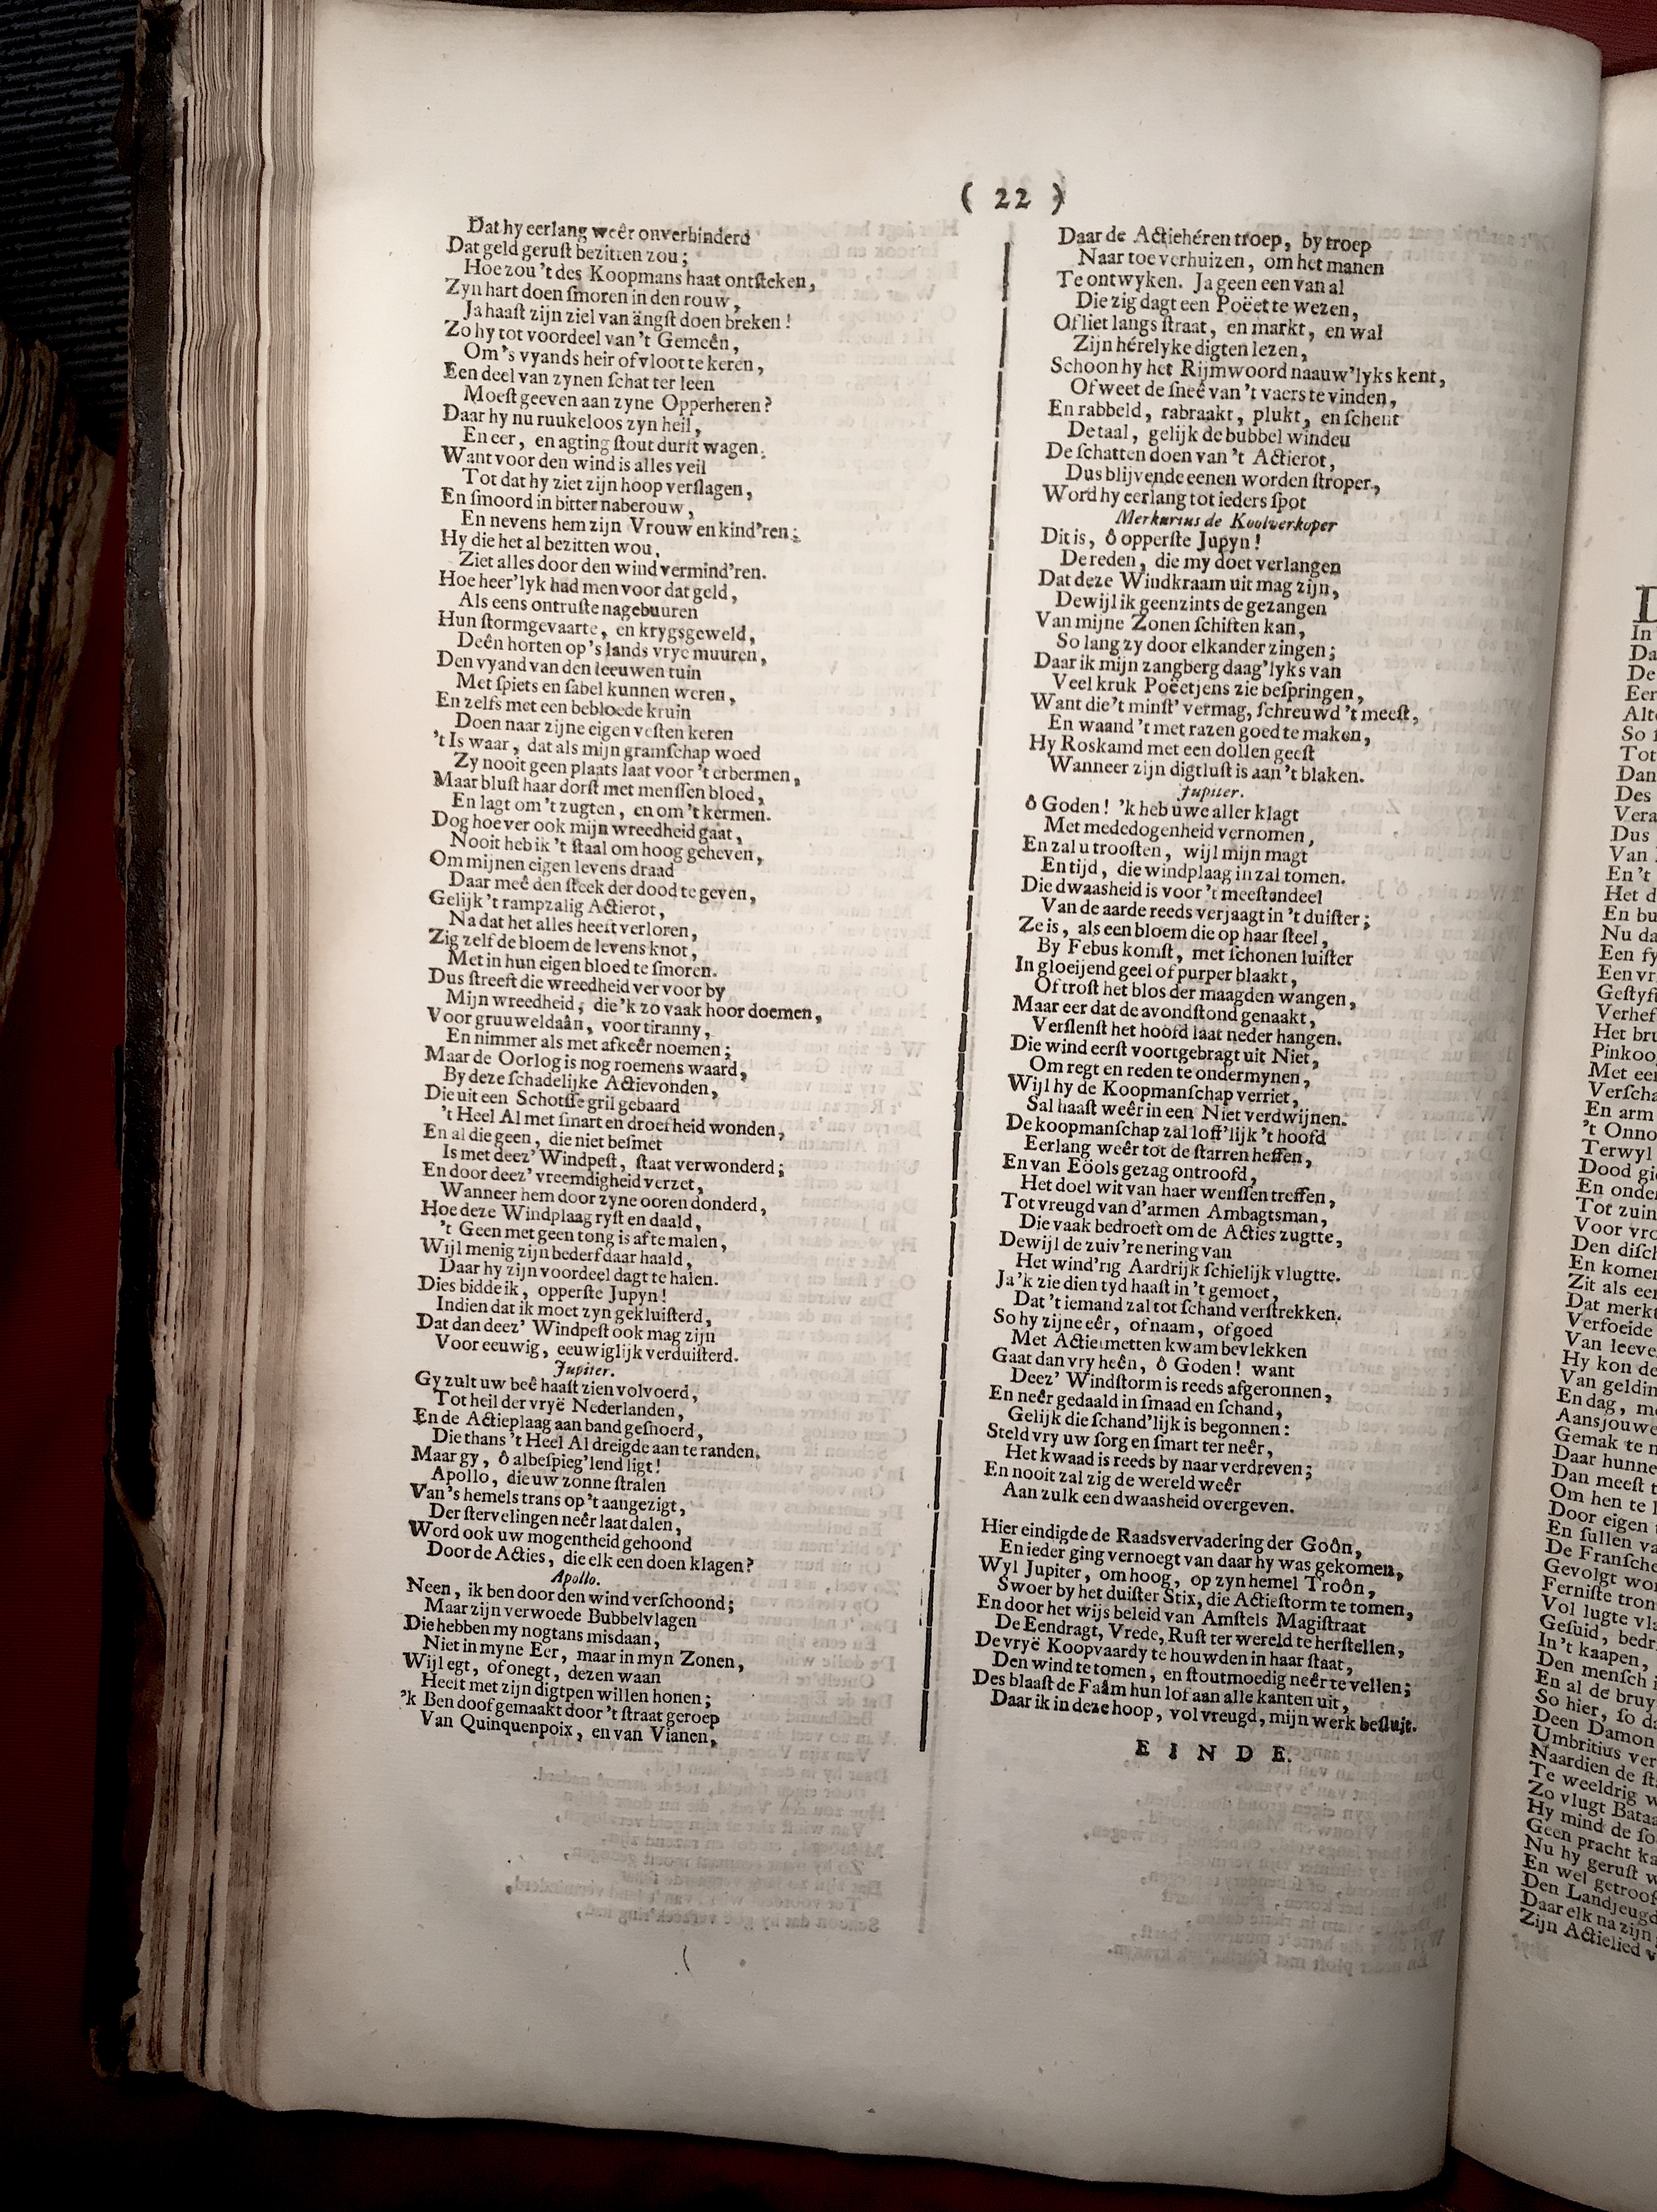 ( 22 )
Dat hy eerlang weêr onverhinderd
Dat geld geruſt bezitten zou;
Hoe zou 't des Koopmans haat ontſteken,
Zyn hart doen ſmoren in den rouw,
Ja haaſt zijn ziel van ängſt doen breken!
Zo hy tot voordeel van 't Gemeên,
Om 's vyands heir of vloot te keren,
Een deel van zynen ſchat ter leen
Moeſt geeven aan zyne Opperheren?
Daar hy nu ruukeloos zyn heil,
En eer, en agting ſtout durft wagen.
Want voor den wind is alles veil
Tot dat hy ziet zijn hoop verſlagen,
En ſmoord in bitter naberouw,
En nevens hem zijn Vrouw en kind'ren;
Hy die het al bezitten wou,
Ziet alles door den wind vermind'ren.
Hoe heer'lyk had men voor dat geld,
Als eens ontruſte nagebuuren
Hun ſtormgevaarte, en krygsgeweld,
Deên horten op 's lands vrye muuren,
Den vyand van den leeuwen tuin
Met ſpiets en ſabel kunnen weren,
En zelfs met een bebloede kruin
Doen naar zijne eigen veſten keren
't Is waar, dat als mijn gramſchap woed
Zy nooit geen plaats laat voor 't erbermen,
Maar bluſt haar dorſt met menſſen bloed,
En lagt om 't zugten, en om 't kermen.
Dog hoe ver ook mijn wreedheid gaat,
Nooit heb ik 't ſtaal om hoog geheven,
Om mijnen eigen levens draad
Daar meê den ſteek der dood te geven,
Gelijk 't rampzalig Actierot,
Na dat het alles heeft verloren,
Zig zelf de bloem de levens knot,
Met in hun eigen bloed te ſmoren.
Dus ſtreeft die wreedheid ver voor by
Mijn wreedheid, die 'k zo vaak hoor doemen,
Voor gruuweldaân, voor tiranny,
En nimmer als met afkeêr noemen;
Maar de Oorlog is nog roemens waard,
By deze ſchadelijke Actievonden,
Die uit een Schotſſe gril gebaard
't Heel Al met ſmart en droefheid wonden,
En al die geen, die niet beſmet
Is met deez' Windpeſt, ſtaat verwonderd;
En door deez' vreemdigheid verzet,
Wanneer hem door zyne ooren donderd,
Hoe deze Windplaag ryſt en daald,
't Geen met geen tong is af te malen,
Wijl menig zijn bederf daar haald,
Daar hy zijn voordeel dagt te halen.
Dies bidde ik, opperſte Jupyn!
Indien dat ik moet zyn gekluiſterd,
Dat dan deez' Windpeſt ook mag zijn
Voor eeuwig, eeuwiglijk verduiſterd.
Jupiter.
Gy zult uw beê haaſt zien volvoerd,
Tot heil der vryë Nederlanden,
En de Actieplaag aan band geſnoerd,
Die thans 't Heel Al dreigde aan te randen.
Maar gy, ô albeſpieg'lend ligt!
Apollo, die uw zonne ſtralen
Van 's hemels trans op 't aangezigt,
Der ſtervelingen neêr laat dalen,
Word ook uw mogentheid gehoond
Door de Acties, die elk een doen klagen?
Apollo.
Neen, ik ben door den wind verſchoond;
Maar zijn verwoede Bubbelvlagen
Die hebben my nogtans misdaan,
Niet in myne Eer, maar in myn Zonen,
Wijl egt, of onegt, dezen waan
Heeft met zijn digtpen willen honen;
'k Ben doof gemaakt door 't ſtraat geroep
Van Quinquenpoix, en van Vianen,
Daar de Actiehéren troep, by troep
Naar toe verhuizen, om het manen
Te ontwyken. Ja geen een van al
Die zig dagt een Poëet te wezen,
Of liet langs ſtraat, en markt, en wal
Zijn hérelyke digten lezen,
Schoon hy het Rijmwoord naauw'lyks kent,
Of weet de ſneê van 't vaers te vinden,
En rabbeld, rabraakt, plukt, en ſchent
De taal, gelijk de bubbel winden
De ſchatten doen van 't Actierot,
Dus blijvende eenen worden ſtroper,
Word hy eerlang tot ieders ſpot
Merkurius de Koolverkoper
Dit is, ô opperſte Jupyn!
De reden, die my doet verlangen
Dat deze Windkraam uit mag zijn,
Dewijl ik geenzints de gezangen
Van mijne Zonen ſchiften kan,
So lang zy door elkander zingen;
Daar ik mijn zangberg daag'lyks van
Veel kruk Poëetjens zie beſpringen,
Want die 't minſt' vermag, ſchreuwd 't meeſt,
En waand 't met razen goed te maken,
Hy Roskamd met een dollen geeſt
Wanneer zijn digtluſt is aan 't blaken.
Jupiter.
ô Goden! 'k heb uwe aller klagt
Met mededogenheid vernomen,
En zal u trooſten, wijl mijn magt
En tijd, die windplaag in zal tomen.
Die dwaasheid is voor 't meeſtendeel
Van de aarde reeds verjaagt in 't duiſter;
Ze is, als een bloem die op haar ſteel,
By Febus komſt, met ſchonen luiſter
In gloeijend geel of purper blaakt,
Of troſt het blos der maagden wangen,
Maar eer dat de avondſtond genaakt,
Verſlenſt het hoofd laat neder hangen.
Die wind eerſt voortgebragt uit Niet,
Om regt en reden te ondermynen,
Wijl hy de Koopmanſchap verriet,
Sal haaſt weêr in een Niet verdwijnen.
De koopmanſchap zal loff'lijk 't hoofd
Eerlang weêr tot de ſtarren heffen,
En van Eöols gezag ontroofd,
Het doel wit van haer wenſſen treffen,
Tot vreugd van d'armen Ambagtsman,
Die vaak bedroeft om de Acties zugtte,
Dewijl de zuiv're nering van
Het wind'rig Aardrijk ſchielijk vlugtte.
Ja 'k zie dien tyd haaſt in 't gemoet,
Dat 't iemand zal tot ſchand verſtrekken,
So hy zijne eêr, of naam, of goed
Met Actieſmetten kwam bevlekken
Gaat dan vry heên, ô Goden! want
Deez' Windſtorm is reeds afgeronnen,
En neêr gedaald in ſmaad en ſchand,
Gelijk die ſchand'lijk is begonnen:
Steld vry uw ſorg en ſmart ter neêr,
Het kwaad is reeds by naar verdreven;
En nooit zal zig de wereld weêr
Aan zulk een dwaasheid overgeven.
Hier eindigde de Raadsvervadering der Goôn,
En ieder ging vernoegt van daar hy was gekomen,
Wyl Jupiter, om hoog, op zyn hemel Troôn,
Swoer by het duiſter Stix, die Actieſtorm te tomen,
En door het wijs beleid van Amſtels Magiſtraat
De Eendragt, Vrede, Ruſt ter wereld te herſtellen,
De vryë Koopvaardy te houwden in haar ſtaat,
Den wind te tomen, en ſtoutmoedig neêr te vellen;
Des blaaſt de Faâm hun lof aan alle kanten uit,
Daar ik in deze hoop, vol vreugd, mijn werk beſluit.
EINDE.
D
In
Da
De
Eer
Alt
So
Tot
Dan
Des
Vera
Dus
Van
En 't
Het d
En bu
Nu da
Een fy
Een vr
Geſtyf
Verhef
Het bru
Pinkoo
Met ee
Verſcha
En arm
't Onno
Terwyl
Dood gi
En onde
Tot zuin
Voor vro
Den diſch
En komen
Zit als ee
Dat merk
Verfoeide
Van leeve
Hy kon de
Van geldin
En dag, me
Aansjouwe
Gemak te n
Daar hunne
Dan meeſt t
Om hen te
Door eigen
En ſullen va
De Franſche
Gevolgt wo
Ferniſte tron
Vol lugte vla
Geſuid, bedr
In 't kaapen,
Den menſch i
En al de bruy
So hier, ſo da
Deen Damon
Umbritius ver
Naardien de ſt
Te weeldrig w
Zo vlugt Bataa
Hy mind de ſo
Geen pracht ka
Nu hy geruſt w
En wel getrooſ
Den Landjeugd
Daar elk na zijn
Zijn Actielied v